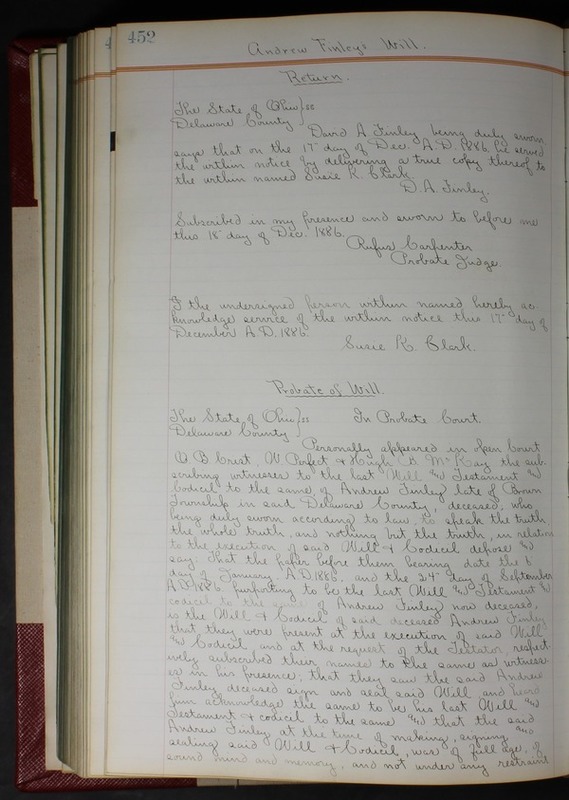 452
Andrew Finleys Will.
Return.
The State of Ohio } ss
Delaware County }
David A Finley being duly sworn
says that on the 17" day of Dec. A.D. 1886 he served
the within notice by delivering a true copy thereof to
the within named Susie K. Clark.
D. A. Finley.
Subscribed in my presence and sworn to before me
this 18" day of Dec. 1886.
Rufus Carpenter
Probate Judge
I the undersigned person within named hereby ac-
knowledge service of the within notice this 17" day of
December A.D. 1886.
Susie K. Clark.
Probate of Will.
The State of Ohio } ss In Probate Court.
Delaware County }
Personally appeared in open Court
W. Perfect & Hugh McKay the sub-
scribing witnesses to the last Will and Testament and
Codicil to the same, of Andrew Finley late of Brown
Township in said Delaware County, deceased, who
being duly sworn according to law, to speak the truth
the whole truth, and nothing but the truth, in relation
to the execution of said Will & Codicil depose and
say: That the paper before them bearing date the 6"
day of January A.D. 1886, and the 24" day of September
A.D. 1886 purporting to be the last Will and Testament and
codicil to the same of Andrew Finley now deceased,
is the Will & Codicil of said deceased Andrew Finley
that they were present at the execution of said Will
and Codicil, and at the request of the Testator, respect-
ively subscribed their names to the same as witness-
es in his presence; that they saw the said Andrew
Finley deceased sign and seal said Will, and heard
him acknowledge the same to be his last Will and
Testament & codicil to the same and that the said
Andrew Finley at the time of making, signing and
sealing said Will & Codicil, was of full age, of
sound mind and memory, and not under any restraint